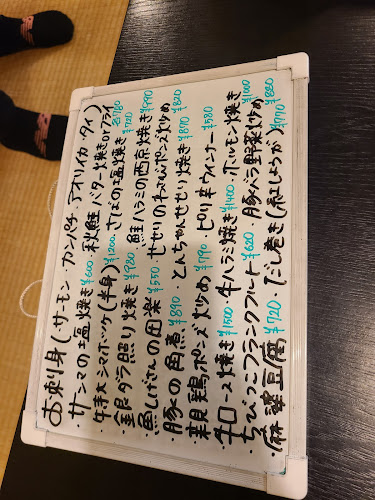 お刺身(サーモン・カンパチ・アオリイカ・タイ)
・サンマの塩焼き¥600・秋鮭バター焼きorフライ 各¥780
・特大シマホッケ(半身)¥1200・さばの塩焼き¥720
・銀ダラ照り焼き¥980・鮭ハラミの西京焼き¥990
¥550・せせりのポンズ炒め¥820
・豚の角煮¥890・とんちゃんせせり焼き¥870
・親鶏ポンズ炒め¥790・ピリ辛ウィンナー¥580
・牛ロース焼き¥1500・牛ハラミ焼き¥1400・ホルモン焼き¥1000
・ちびっこフランクフルト¥620・豚バラ野菜炒め¥880
・麻婆豆腐¥720・だし巻き(紅しょうが)¥770